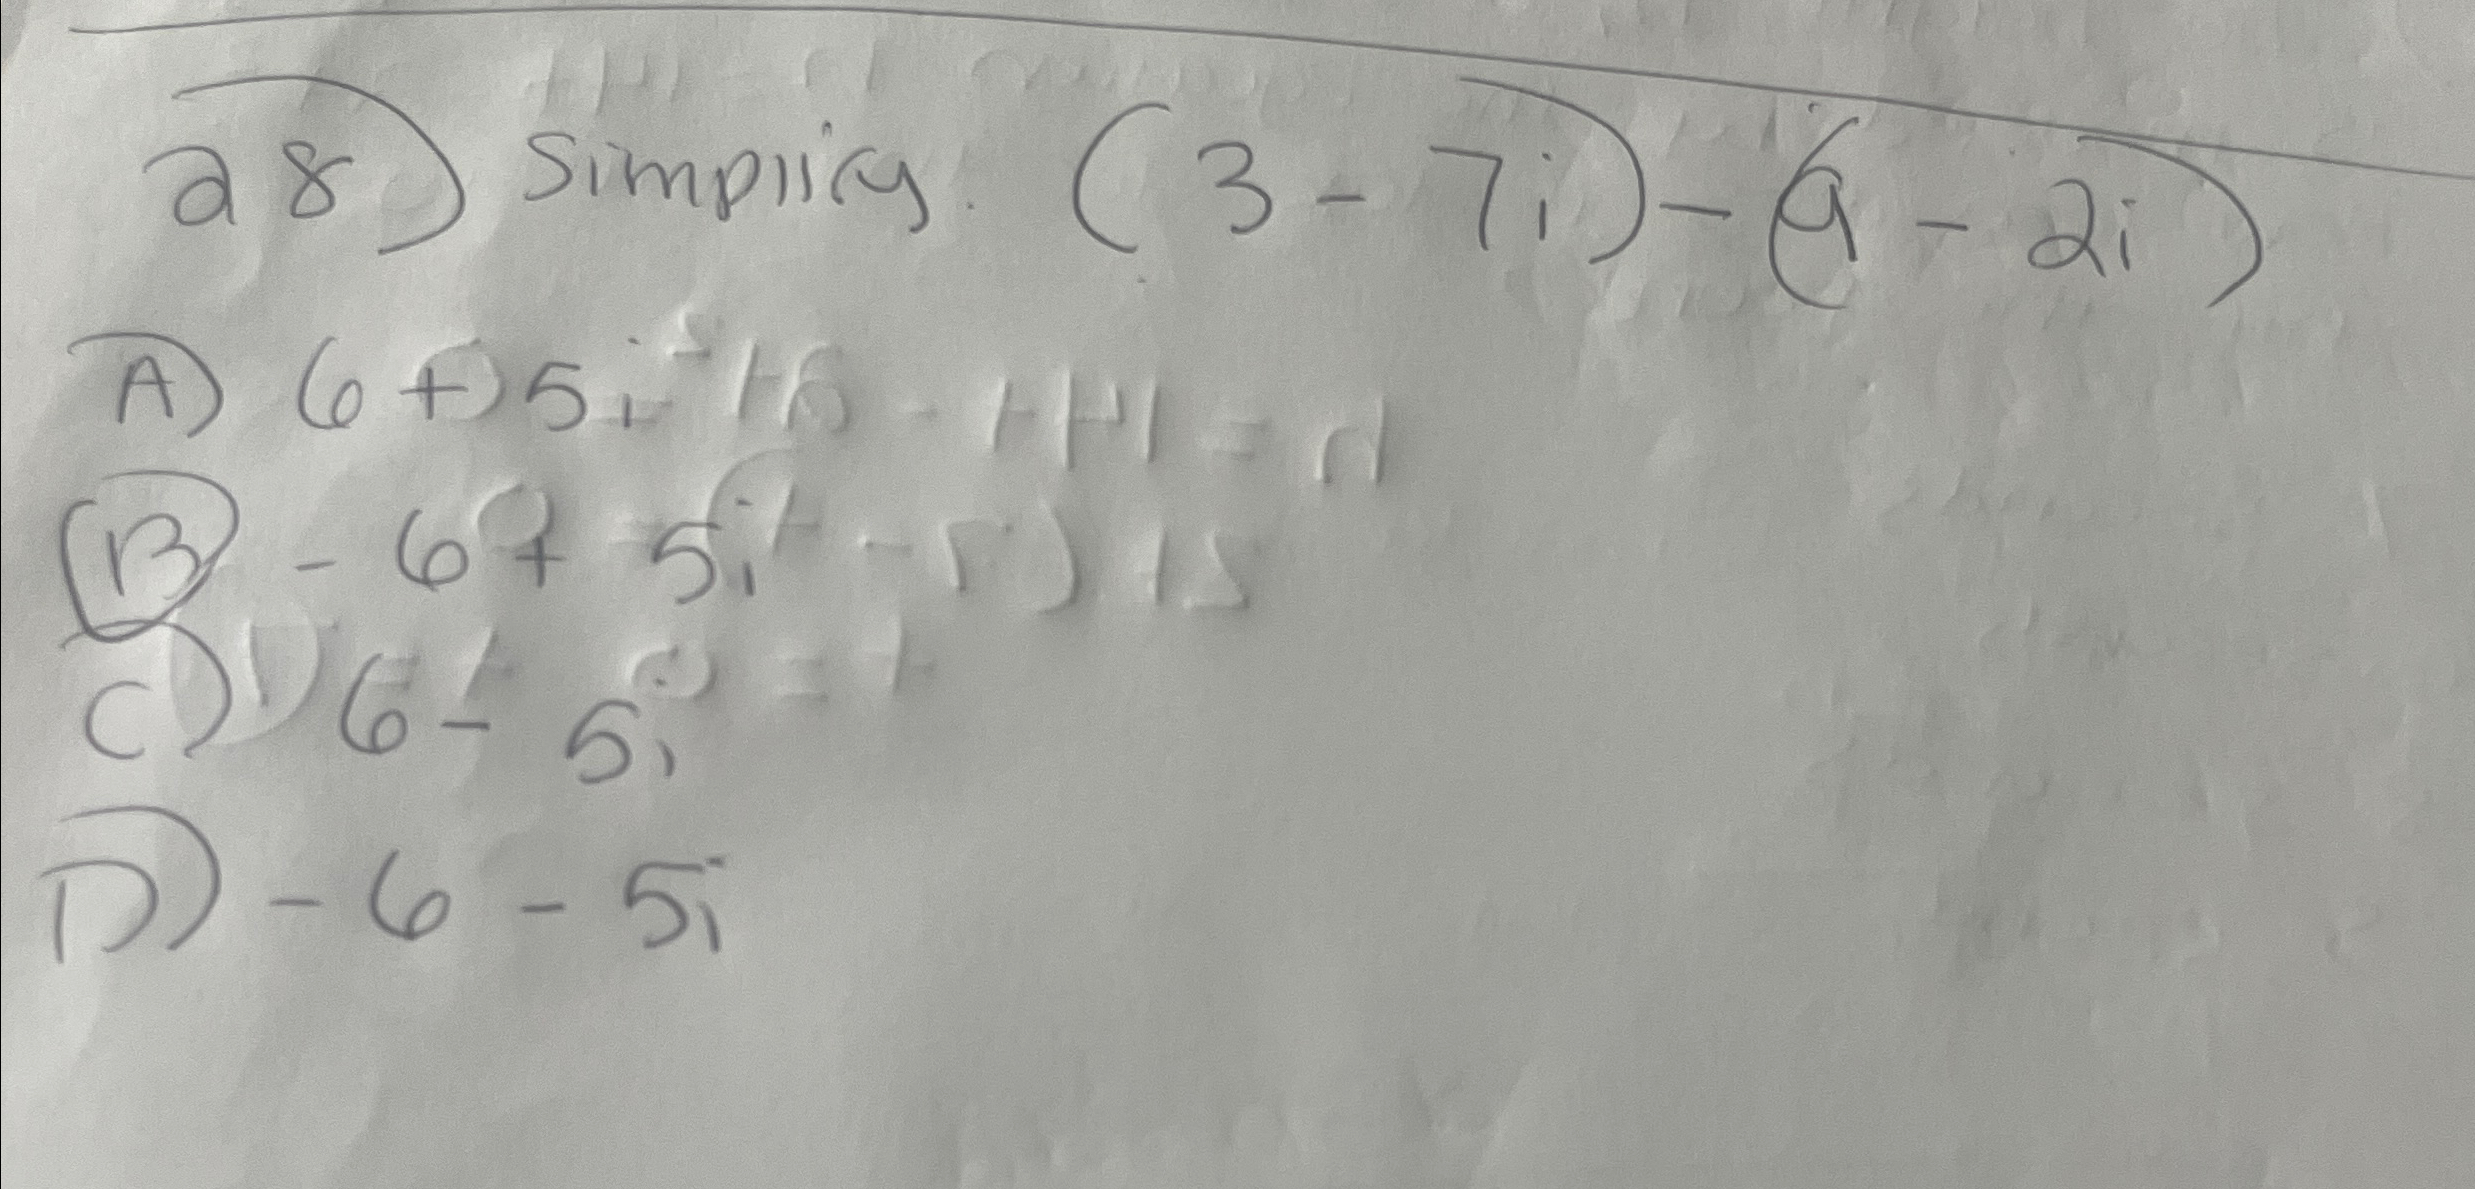 28) Simplify. (3 - 7i) - (9 - 2i)
A) 6 + 5i
B) - 6 + 5i
C) 6 - 5i
D) - 6 - 5i